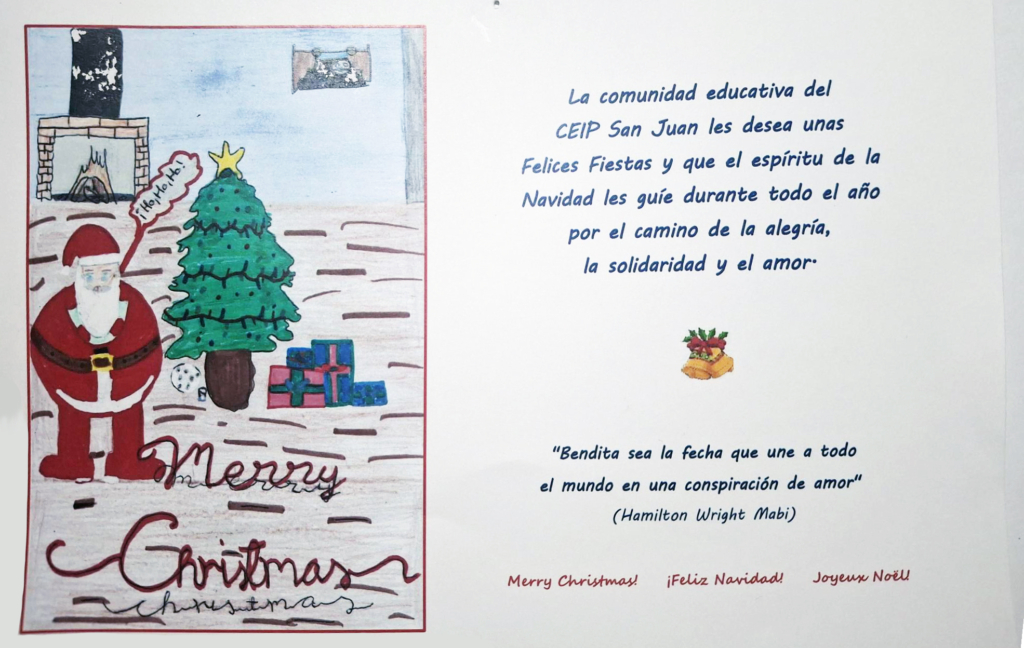 ¡Ho,Ho,Ho!
Merry
Merry
Christmas
Christmas
La comunidad educativa del
CEIP San Juan les desea unas
Felices Fiestas y que el espíritu de la
Navidad les guíe durante todo el año
por el camino de la alegría,
la solidaridad y el amor.
“Bendita sea la fecha que une a todo
el mundo en una conspiración de amor”
(Hamilton Wright Mabi)
Merry Christmas! ¡Feliz Navidad! Joyeux Noël!